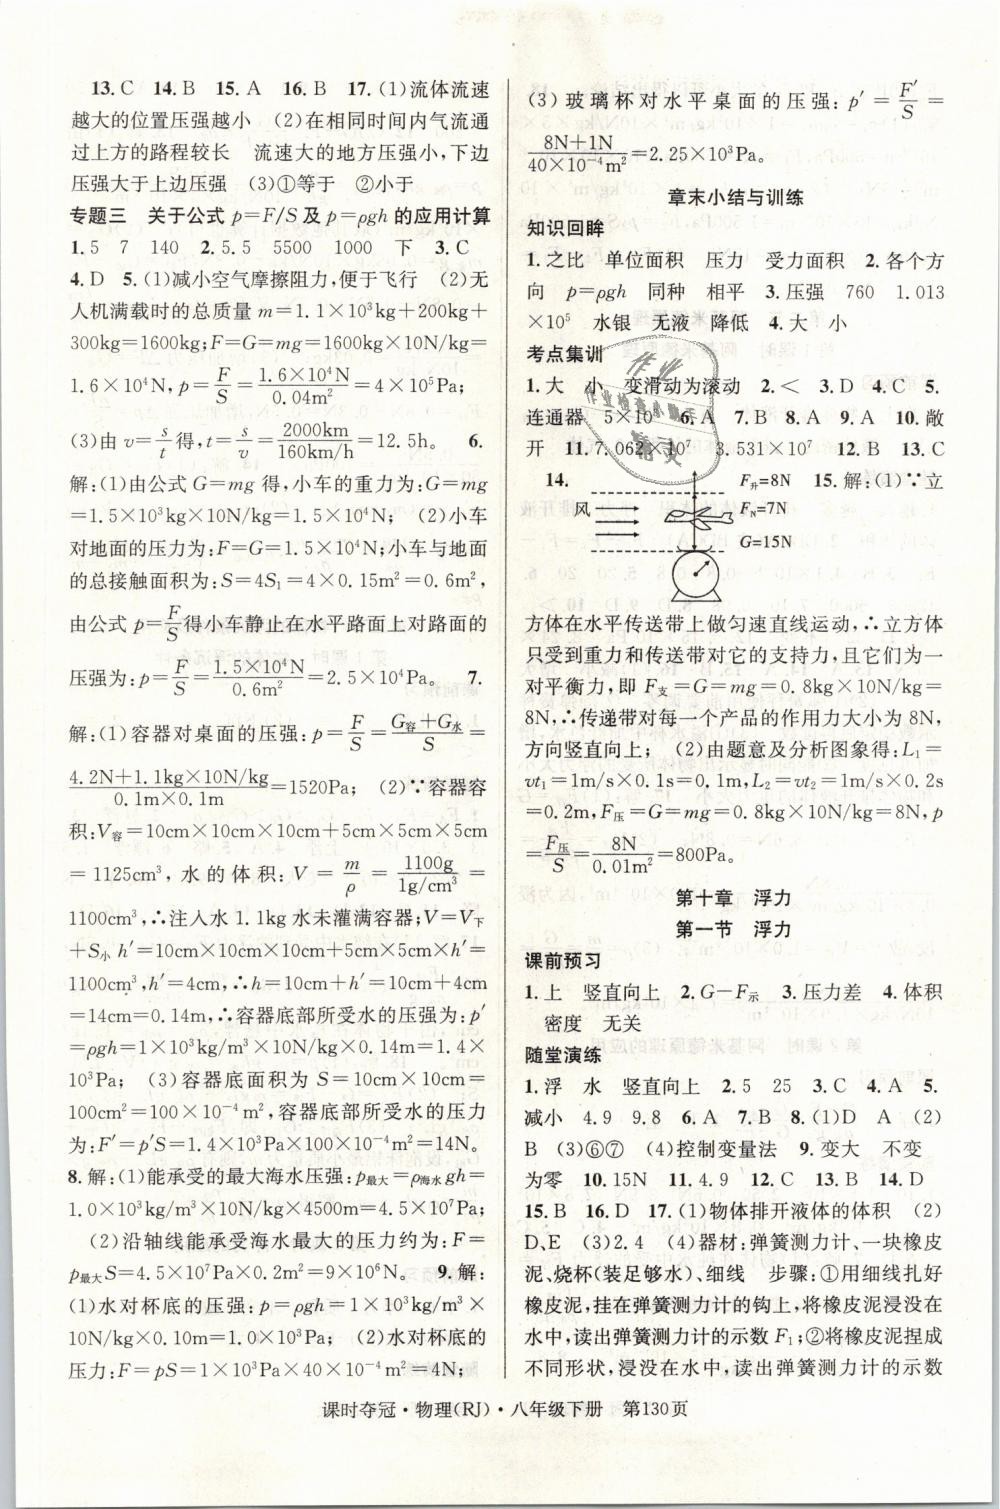 13.C 14.B 15.A 16.B 17.(1)流体流速
越大的位置压强越小 (2)在相同时间内气流通
过上方的路程较长 流速大的地方压强小,下边
压强大于上边压强 (3)①等于 ②小于
专题三 关于公式 p=F/S 及 p=ρgh 的应用计算
1.5 7 140 2.5.5 5500 1000 下 3.C
4.D 5.(1)减小空气摩擦阻力,便于飞行 (2)无
人机满载时的总质量 m=1.1×10³kg+200kg+
300kg=1600kg;F=G=mg=1600kg×10N/kg=
1.6×10⁴N,p=F/S=1.6×10⁴N/0.04m²=4×10⁵Pa;
(3)由 v=s/t得,t=s/v=2000km/160km/h=12.5h。 6.
解:(1)由公式 G=mg 得,小车的重力为:G=mg
=1.5×10³kg×10N/kg=1.5×10⁴N; (2)小车
对地面的压力为:F=G=1.5×10⁴N;小车与地面
的总接触面积为:S=4S₁=4×0.15m²=0.6m²,
由公式 p=F/S得小车静止在水平路面上对路面的
压强为:p=F/S=1.5×10⁴N/0.6m²=2.5×10⁴Pa。 7.
解:(1)容器对桌面的压强:p=F/S=G容+G水/S=
4.2N+1.1kg×10N/kg/0.1m×0.1m=1520Pa; (2)∵容器容
积:V容=10cm×10cm×10cm+5cm×5cm×5cm
=1125cm³,水的体积:V=m/ρ=1100g/1g/cm³=
1100cm³,∴注入水 1.1kg 水未灌满容器;V=V下
+S小 h′=10cm×10cm×10cm+5cm×5cm×h′=
1100cm³,h′=4cm,∴h=10cm+h′=10cm+4cm
=14cm=0.14m,∴容器底部所受水的压强为:p′
=ρgh=1×10³kg/m³×10N/kg×0.14m=1.4×
10³Pa; (3)容器底面积为 S=10cm×10cm=
100cm²=100×10⁻⁴m²,容器底部所受水的压力
为:F′=p′S=1.4×10³Pa×100×10⁻⁴m²=14N。
8.解:(1)能承受的最大海水压强:p最大=ρ海水gh=
1.0×10³kg/m³×10N/kg×4500m=4.5×10⁷Pa;
(2)沿轴线能承受海水最大的压力约为:F=
p最大S=4.5×10⁷Pa×0.2m²=9×10⁶N。 9.解:
(1)水对杯底的压强:p=ρgh=1×10³kg/m³×
10N/kg×0.10m=1.0×10³Pa; (2)水对杯底的
压力:F=pS=1×10³Pa×40×10⁻⁴m²=4N;
(3)玻璃杯对水平桌面的压强:p′=F′/S=
8N+1N/40×10⁻⁴m²=2.25×10³Pa。
章末小结与训练
知识回眸
1.之比 单位面积 压力 受力面积 2.各个方
向 p=ρgh 同种 相平 3.压强 760 1.013
×10⁵ 水银 无液 降低 4.大 小
考点集训
1.大 小 变滑动为滚动 2.< 3.D 4.C 5.
连通器 5×10³ 6.A 7.B 8.A 9.A 10.敞
开 11.7.062×10⁷ 3.531×10⁷ 12.B 13.C
14. 风 F升=8N FN=7N G=15N 15.解:(1)∵立
方体在水平传送带上做匀速直线运动,∴立方体
只受到重力和传送带对它的支持力,且它们为一
对平衡力,即 F支=G=mg=0.8kg×10N/kg=
8N,∴传递带对每一个产品的作用力大小为 8N,
方向竖直向上; (2)由题意及分析图象得:L₁=
vt₁=1m/s×0.1s=0.1m,L₂=vt₂=1m/s×0.2s
=0.2m,F压=G=mg=0.8kg×10N/kg=8N,p
=F压/S=8N/0.01m²=800Pa。
第十章 浮力
第一节 浮力
课前预习
1.上 竖直向上 2.G−F示 3.压力差 4.体积
密度 无关
随堂演练
1.浮 水 竖直向上 2.5 25 3.C 4.A 5.
减小 4.9 9.8 6.A 7.B 8.(1)D A (2)
B (3)⑥⑦ (4)控制变量法 9.变大 不变
为零 10.15N 11.4.9 12.C 13.B 14.D
15.B 16.D 17.(1)物体排开液体的体积 (2)
D、E (3)2.4 (4)器材:弹簧测力计、一块橡皮
泥、烧杯(装足够水)、细线 步骤:①用细线扎好
橡皮泥,挂在弹簧测力计的钩上,将橡皮泥浸没在
水中,读出弹簧测力计的示数 F₁;②将橡皮泥捏成
不同形状,浸没在水中,读出弹簧测力计的示数
课时夺冠·物理(RJ)·八年级下册 第130页